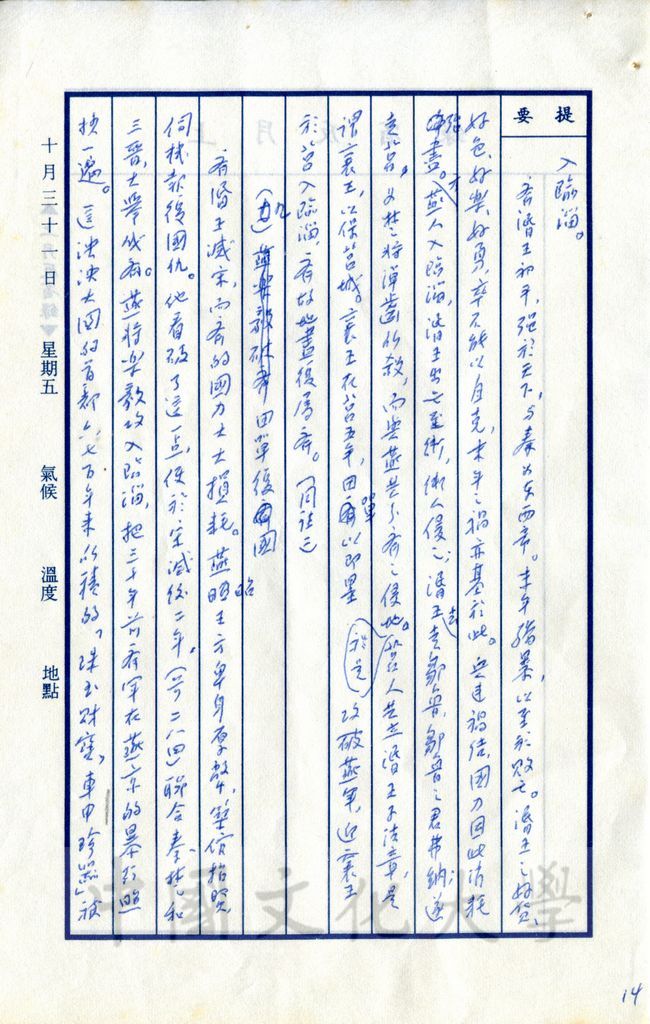 提要
入臨淄。
齊湣王初年，强於天下，与秦为东西帝。末年驕暴，以至於敗亡。湣王之好貨、
好色、好樂、好勇，卒不能以自克，末年之禍亦基於此。兵連禍结，國力因此消耗
殆盡。燕人入臨淄，湣王出亡至衛，衛人侵之；湣王去，走鄒魯，鄒魯之君弗納；遂
走莒，又楚之将淖齒所殺，而與燕共分齊之侵地。莒人共立湣王子法章，是
謂襄王，以保莒城。襄王在莒五年，田單以即墨攻破燕軍，迎襄王
於是
於莒入臨淄，齊故地盡復屬齊。（同註三
（九）田單復國
齊湣王滅宋，而齊的國力大大損耗。燕昭王方卑身厚幣，築館招賢
伺機報復國仇。他看破了這一点，便於宋滅後二年。（前二八四）聯合秦、楚、和
三晉，大舉伐齊。燕将樂毅攻入臨淄，把三十年前齊軍在燕京的暴行照
抄一遍。這泱泱大國的首都六七百年来所積的，「珠玉財寶，車甲珍器」被
十月三十一日 星期五 氣候 溫度 地點
中國文化大學
14